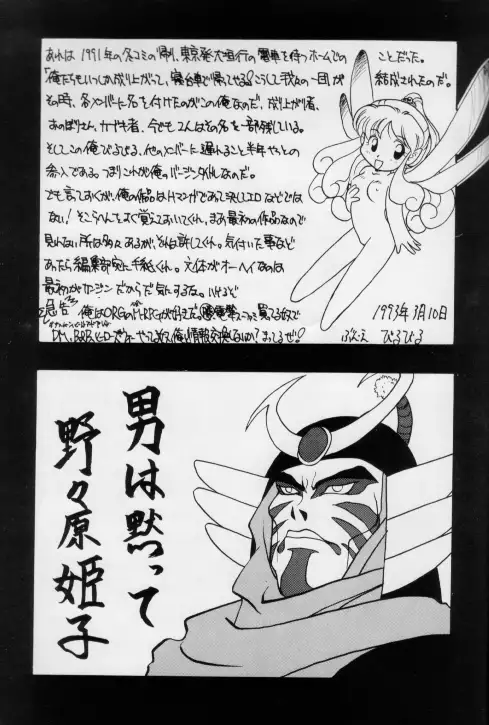 あれは1991年の冬コミの帰り、東京発大垣行の電車を待つホームでの
ことだった。
「俺たちもいつか成り上がって、寝台車で帰ってやる!こうして我々の一団が
結成されたのだ。
その時、各メンバーに名を付けたのがこの俺なのだ。成り上がり者、
あのぼりさん、カブキ者、今でも2人はその名を一部残している。
そしてこの俺びるびる、他のメンバーに遅れること半年やっとの
参入である。つまりこれが俺のバージン外しなのだ。
でも言っておくが、俺の作品はHマンガであって決してエロなどでは
ない!そこらへんをよく覚えておいてくれ。まあ最初の作品なので
見れない所は多々あるが、それは許してくれ。気付いた事など
あったら編集部宛に手紙くれ。文体がオーヘイなのは
最初がカンジンだからだ気にするな。
俺はORGの
買ってる奴で
DM、
俺と情報交換しないか?まってるぜ!
1993年3月10日
びるびる
男は黙って
野々原姫子